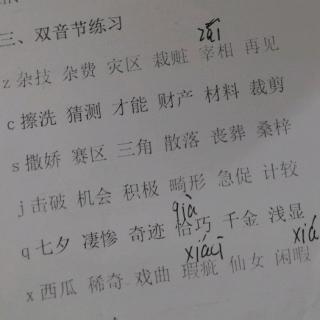 三、双音节练习
zāi
z 杂技 杂费 灾区 栽赃 宰相 再见
c 擦洗 猜测 才能 财产 材料 裁剪
s 撒娇 赛区 三角 散落 丧葬 桑梓
j 击破 机会 积极 畸形 急促 计较
qià
q 七夕 凄惨 奇迹 恰巧 千金 浅显
xiácī xiá
x 西瓜 稀奇 戏曲 瑕疵 仙女 闲暇